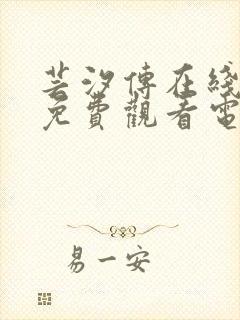 芸汐傳在綫
免費觀看電
易一安